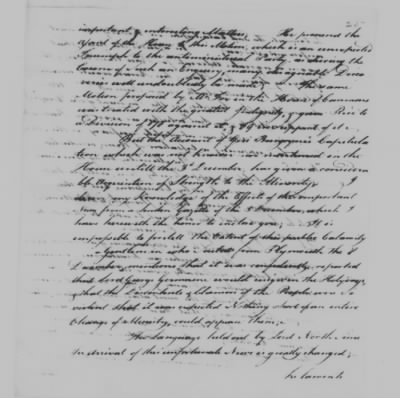 important & interesting Matters, He pressed the
of the House to this Motion, which is an unexpected
Triumph to the antiministerial Party, as during the
Course of such an Enquiry, many disagreeable Disco
veries will undoubtedly be made; The same
Motion proposed by Mr Fox in the House of Commons
was treated with the greatest & gave Rise to
a Division of against it, & in support of it.
But the Account of Genl Burgoyne's Capitula
tion which was not known or mentioned in the
House untill the 3d December, has given a considera
ble Acquisition of Strength to the Minority, I
my Knowledge of the Effects of this important
from a Gazette of the December, which I
have herewith the Honor to inclose you, It is
impossible to foretell the Extent of this public Calamity
a Gentleman who from Plymouth the 8
December, mentions that it was confidently reported
that Lord George Germaine would resign on the Holydays,
that the Discontents & Clamours of the People were so
violent that it was expected Nothing short of an entire
Change of Ministry could appease them;
The Language held out by Lord North since
the Arrival of the unfortunate News is greatly changed;
he laments